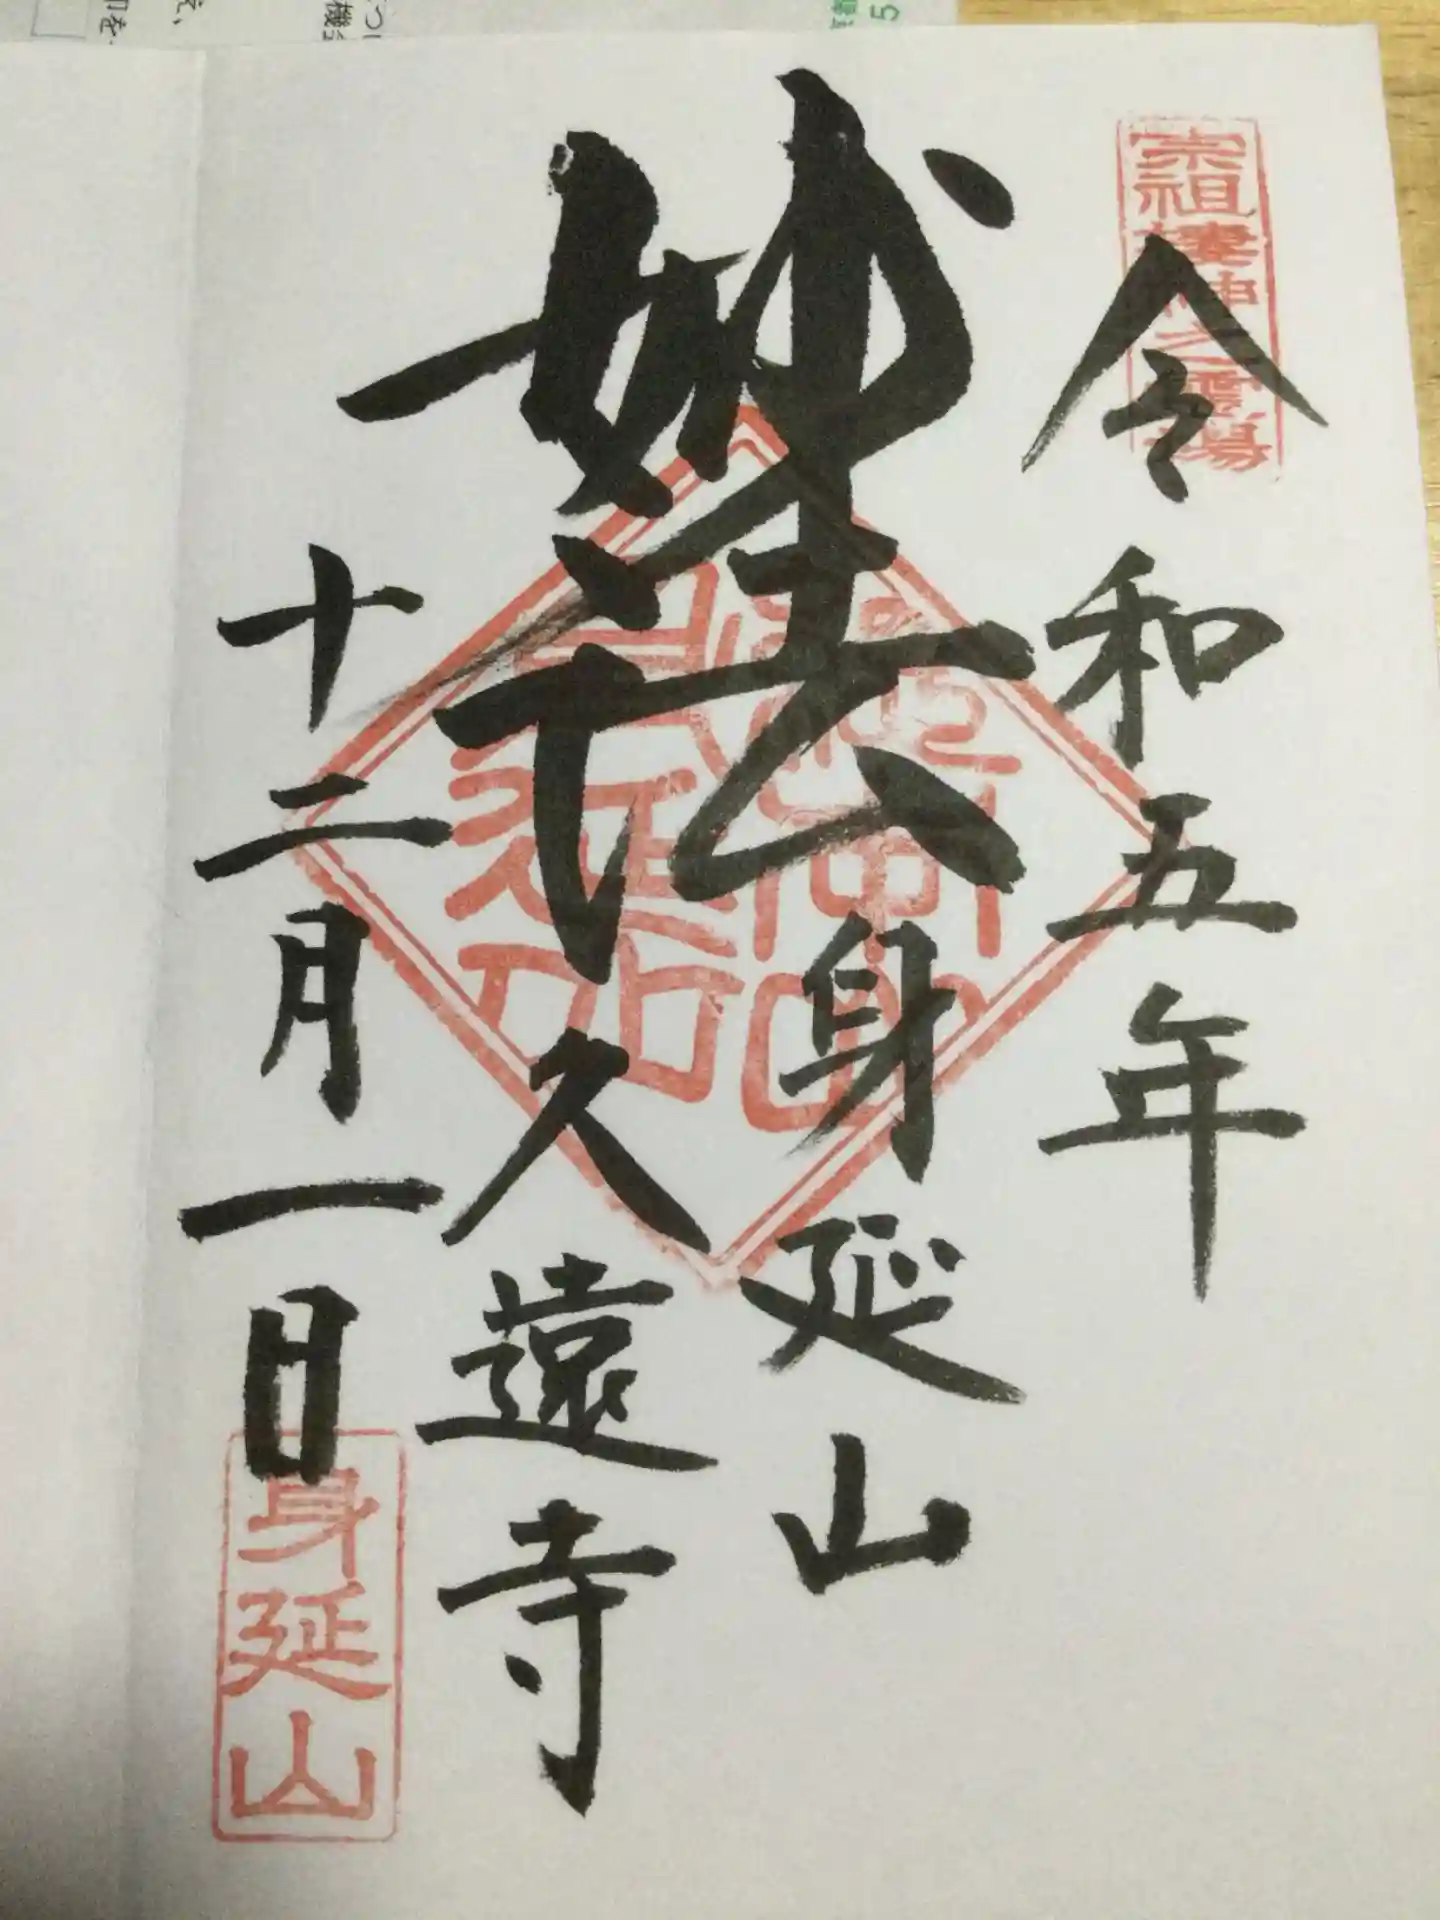 宗祖棲神之霊場
令和五年
妙法
身延山
久遠寺
十二月一日
身延山